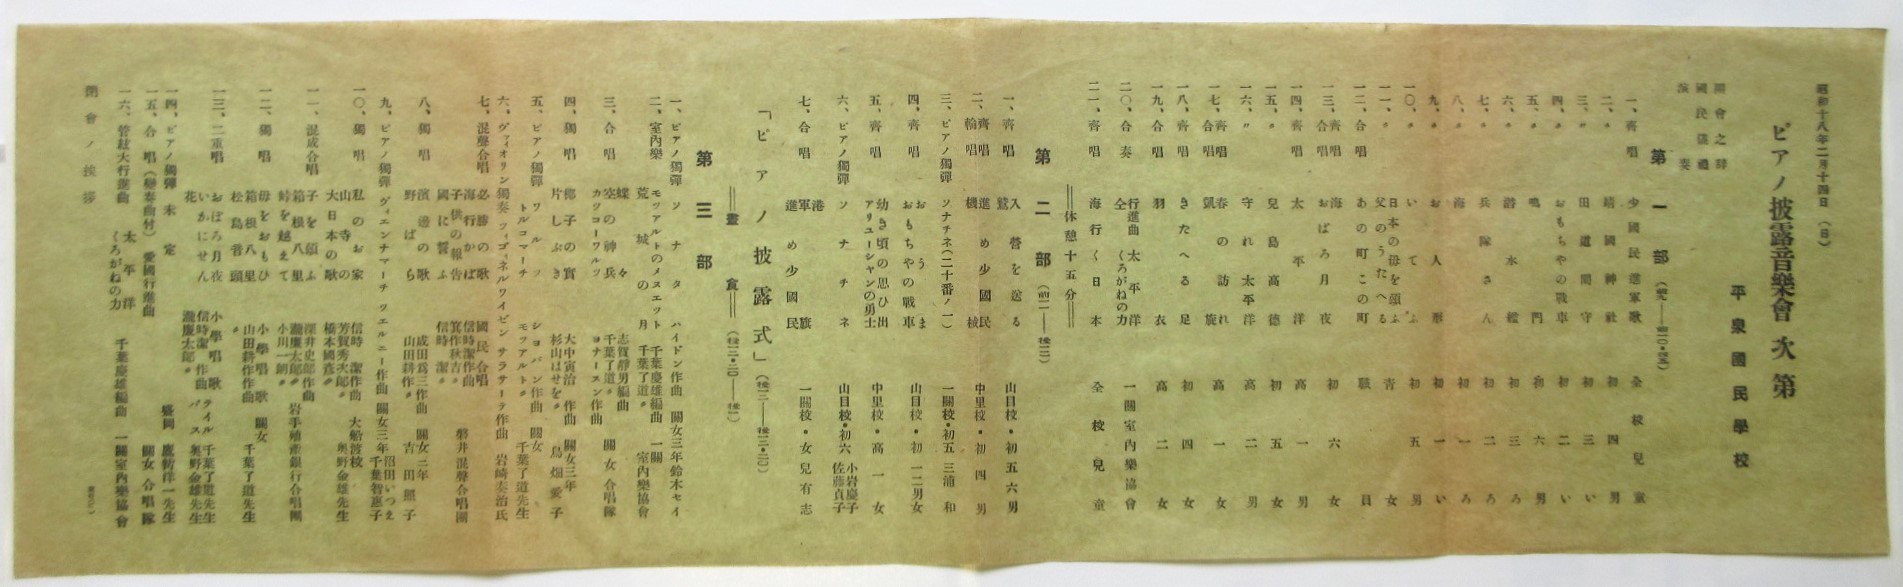 昭和十八年二月十四日(日)
ピアノ披露音樂會次第
平泉國民學校
開會之辭
國民儀禮
演奏
第一部
一、齊唱 少國民進軍歌 全校兒童
二、〃 靖國神社 初四男
三、〃 田道間守 初三い
四、〃 おもちやの戰車 初二い
五、〃 鳴門 初六男
六、〃 潜水艦 初三ろ
七、〃 兵隊さん 初二ろ
八、〃 海 初一ろ
九、〃 お人形 初一い
一〇、〃 いてふ 初五男
一一、〃 父のうたへる 日本の母を頌ふ 青女
一二、合唱 あの町この町 職員
一三、齊唱 合唱 海 おぼろ月夜 初六女
一四、齊唱 太平洋 高一男
一五、〃 兒島高德 初五女
一六、〃 守れ太平洋 高二男
一七、齊唱 合唱 春の訪れ 凱旋 高一女
一八、齊唱 きたへる足 初四女
一九、合唱 羽衣 高二女
二〇、合奏 行進曲 太平洋 仝 くろがねの力 一關室內樂協會
二一、齊唱 海行く日本 全校兒童
══休憩十五分══
第二部
一、齊唱 入營を送る 山目校・初五六男
二、齊唱 輪唱 進め少國民 機械 中里校・初四男
三、ピアノ獨彈 ソナチネ(二十番ノ一) 一關校・初五 三浦和
四、齊唱 おうま おもちやの戰車 山目校・初一二男女
五、齊唱 幼き頃の思ひ出 アリユーシヤンの勇士 中里校・高一女
六、ピアノ獨彈 ソナチネ 山目校・初六 小岩慶子 佐藤貞子
七、合唱 港 軍旗 進め少國民 一關校・女兒有志
「ピアノ披露式」
══晝食══
第三部
一、ピアノ獨彈 ソナタ ハイドン作曲 關女三年 鈴木セイ
二、室內樂 モツアルトのメヌエツト 千葉慶雄編曲 荒城の月 千葉了道〃 一關室內樂協會
三、合唱 蝶々 志賀靜男編曲 空の神兵 千葉了道〃 カツコーワルツ ヨナースン作曲 關女合唱隊
四、獨唱 椰子の實 大中寅治作曲 片しぶき 杉山はせを〃 關女三年 鳥畑愛子
五、ピアノ獨彈 ワルツ シヨパン作曲 トルコマーチ モツアルト〃 關女 千葉了道先生
六、ヴイオリン獨奏 チゴイネルワイゼン サラサーテ作曲 岩崎泰治氏
七、混聲合唱 必勝の歌 國民合唱 海行かば 信時潔作曲 子供の報告 箕作秋吉〃 國に誓ふ 信時潔〃 磐井混聲合唱團
八、獨唱 濱邊の歌 成田爲三作曲 野ばら 山田耕作〃 關女二年 吉田照子
九、ピアノ獨彈 ヴイエンナマーチ ツエルニー作曲 關女三年 沼田いつゑ 千葉智惠子
一〇、獨唱 私のお家 信時潔作曲 山寺の 芳賀秀次郎〃 大日本の歌 橋本國彥〃 大船渡校 奥野金雄先生
一一、混成合唱 子を頌ふ 深井史郎作曲 箱根八里 瀧廉太郎〃 峠を越えて 小川一朗〃 岩手殖產銀行合唱團
一二、獨唱 母をおもひ 小學唱歌 箱根八里 山田耕作作曲 松島音頭 〃 關女 千葉了道先生
一三、二重唱 おぼろ月夜 小學唱歌 いかにせん 信時潔作曲 花 瀧廉太郎〃 ライル 千葉了道先生 バス 奥野金雄先生
一四、ピアノ獨彈 未定 盛岡
一五、合唱(變奏曲村) 愛國行進曲 關女合唱隊
一六、管絃大行進曲 太平洋 くろがねの力 千葉慶雄編曲 一關室內樂協會
閉會ノ挨拶